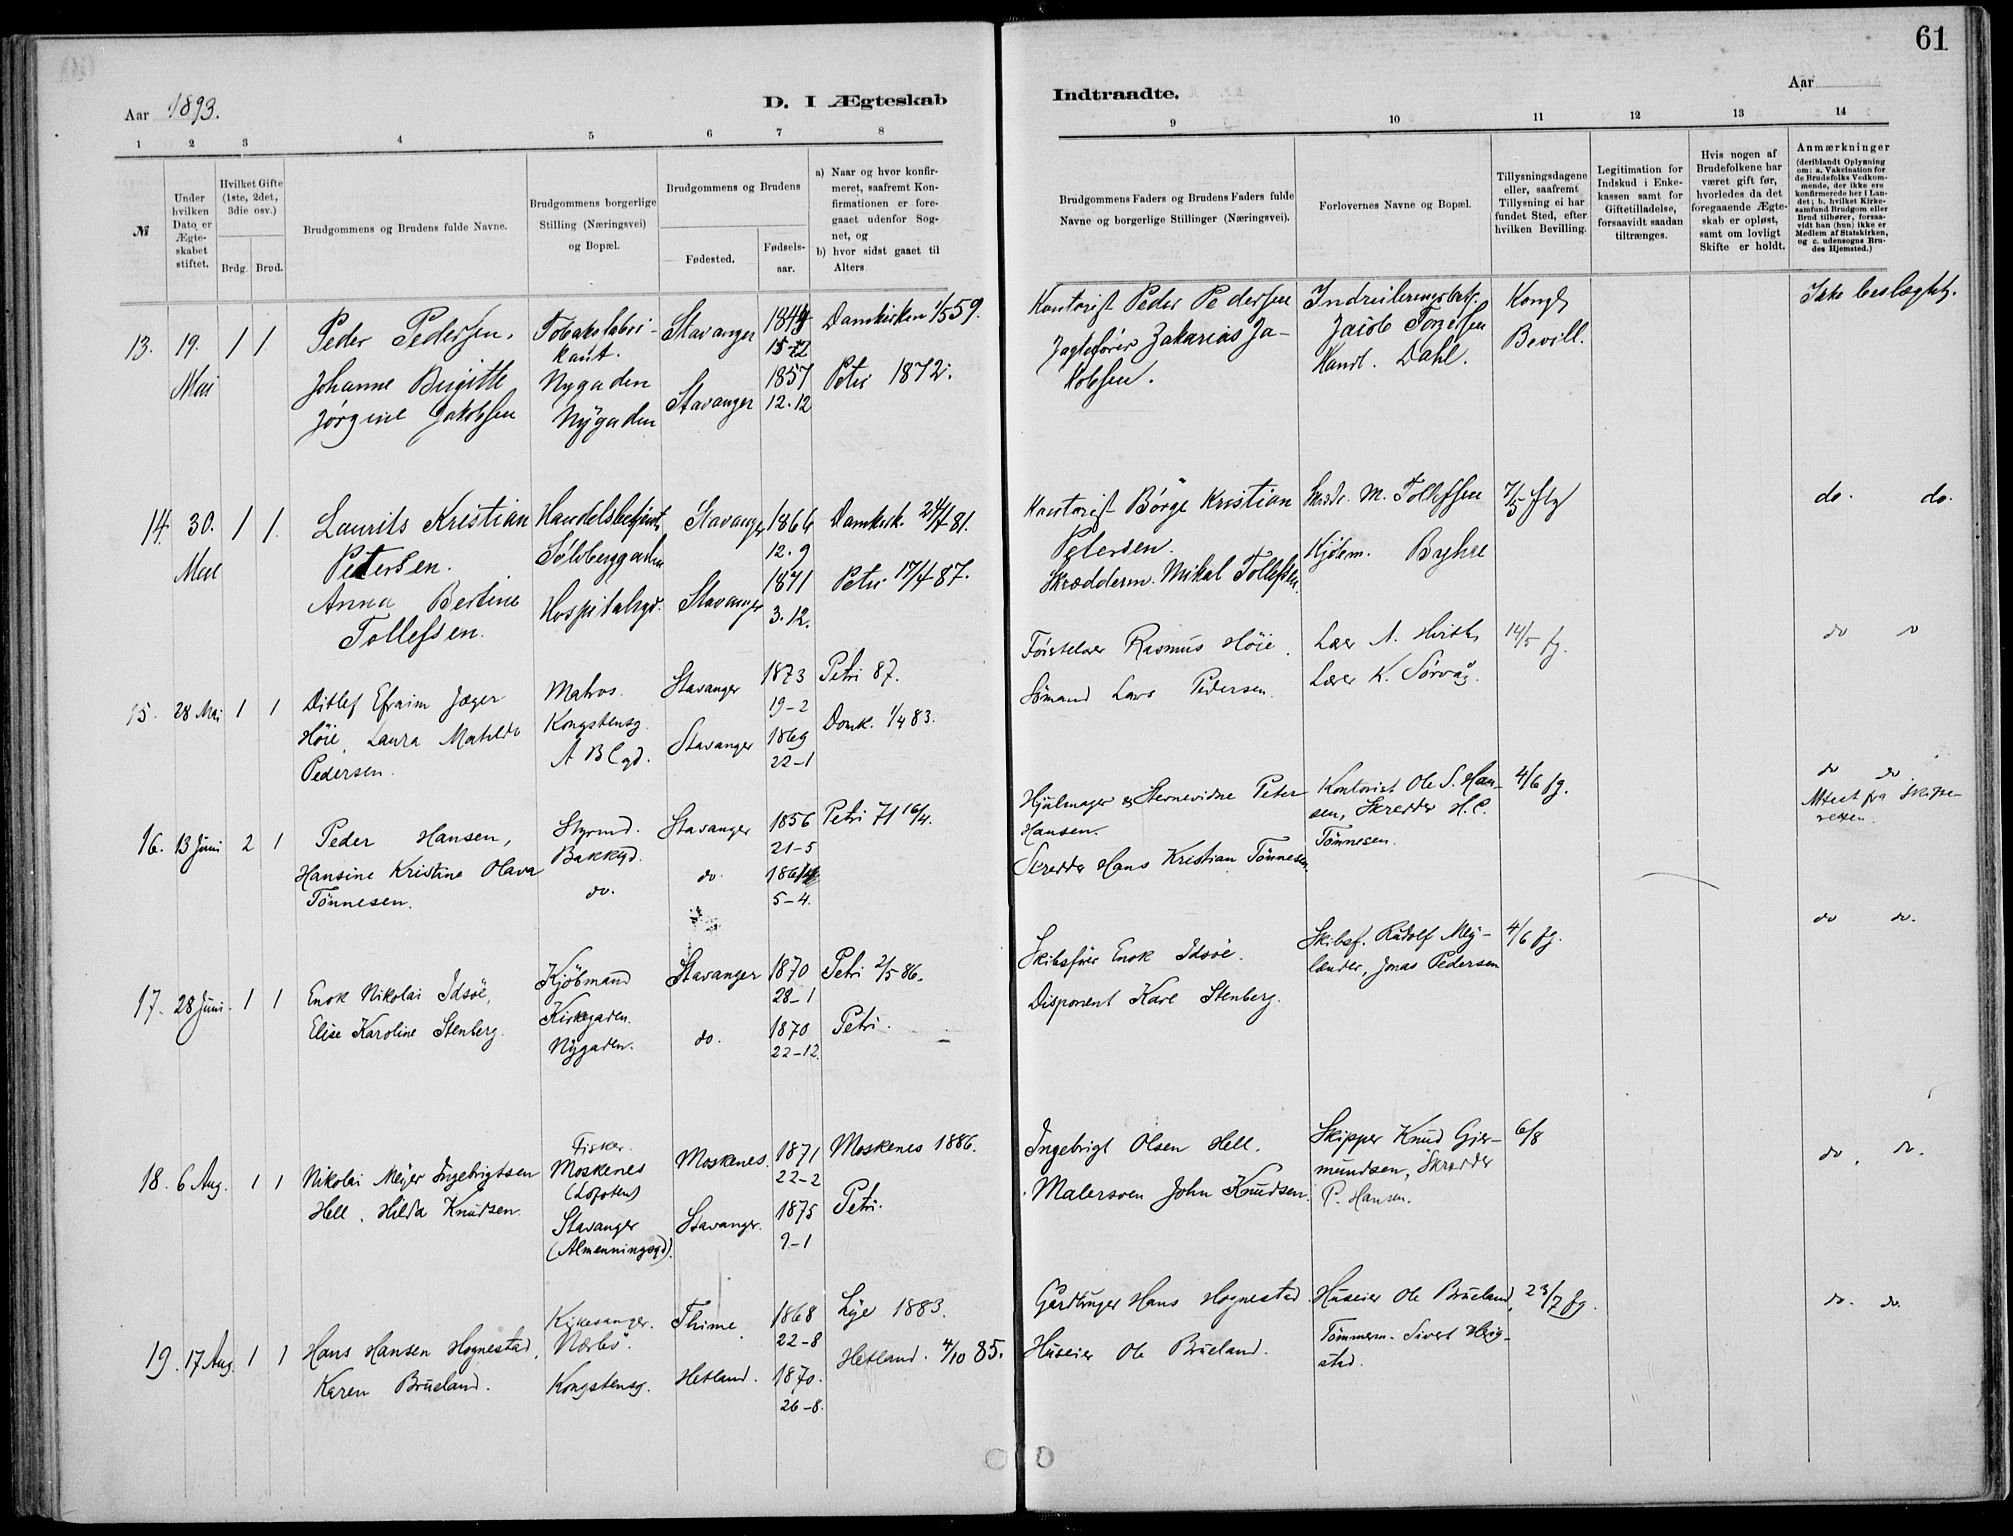 61
Aar 1893.
D. I Ægteskab
Indtraadte.
Aar
1 2 3 4 5 6 7 8 9 10 11 12 13 14
№
Under hvilken Dato er Ægteskabet stiftet.
Hvilket Gifte (1ste, 2det, 3die osv.)
Brdg. Brud.
Brudgommens og Brudens fulde Navne.
Brudgommens borgerlige Stilling (Næringsvei) og Bopæl.
Brudgommens og Brudens
Fødested.
Fødselsaar.
a) Naar og hvor konfirmeret, saafremt Konfirmationen er foregaaet udenfor Sognet, og
b) hvor sidst gaaet til Alters
Brudgommens Faders og Brudens Faders fulde Navne og borgerlige Stillinger (Næringsvei).
Forlovernes Navne og Bopæl.
Tillysningsdagene eller, saafremt Tillysning ei har fundet Sted, efter hvilken Bevilling.
Legitimation for Indskud i Enkekassen samt for Giftetilladelse, forsaavidt saadan tiltrænges.
Hvis nogen af Brudefolkene har været gift før, hvorledes da det foregaaende Ægteskab er opløst, samt om lovligt Skifte er holdt.
Anmærkninger
(deriblandt Oplysning om: a. Vakcination for de Brudefolks Vedkommende, der ikke ere konfirmerede her i Landet; b. hvilket Kirkesamfund Brudgom eller Brud tilhører, forsaavidt han (hun) ikke er Medlem af Statskirken, og c. udensogns Brudes Hjemsted.)
13. 19. Mai 1 1
Peder Pedersen.
Johanne Birgitte
Jørgine Jakobsen
Tobaksfabri-
kant.
Nygaden
Nygaden
Stavanger
Stavanger
1844
15-12
1857
12.12
Domkirken 1/5 59.
Petri 1872.
Kontorist Peder Pedersen
Jagtefører Zakarias Ja-
kobsen.
Jacob Torgersen
Handl. Dahl.
Kongl
Bevill.
Ikke beslægtet.
14. 30. Mai 1 1.
Laurits Kristian
Petersen.
Anna Bertine
Tollefsen.
Handelsbetjent
Sølvberggaden
Hospitalsgd.
Stavanger
Stavanger
1866
12.9
1871
3.12.
Domkirk. 24/4 81.
Petri 17/4 87.
Kontorist Børge Kristian
Petersen.
Skrædderm. Mikal Tollefsen
Skrædr. M. Tollefsen
Kjøbm. Bryhne
7/5 flg
do. do.
15. 28 Mai 1 1
Ditlef Efraim Jæger
Høie, Laura Matilde
Pedersen.
Matros.
Kongstensg.
A B C gd.
Stavanger
Stavanger
1873
19-2
1869
22-1
Petri 87.
Domk. 1/4 83.
Førstelærer Rasmus Høie.
Sømand Lars Pedersen.
Lærer K. Sørvåg.
14/5 fg.
do do
16. 13 Juni 2 1
Peder Hansen,
Hansine Kristine Olava
Tönnesen.
Styrmd.
Bakkegd.
do.
Stavanger
do
1856
21-5
1864
5-4.
Petri 71 16/4.
Hjulmager og Stenevidne Peter
Hansen.
Skredder Hans Kristian Tönnesen
Kontorist Ole S. Han-
sen, Skredder H. C.
Tönnesen.
4/6 fg.
do do
Attest fra Skifte-
retten.
17. 28 Juni. 1 1
Enok Nikolai Idsöe,
Elise Karoline Stenberg.
Kjöbmand
Kirkegaden.
Nygaden.
Stavanger
do.
1870
28-1
1870
22-12.
Petri 2/5 86.
Petri.
Skibsfører Enok Idsöe.
Disponent Karl Stenberg.
Skibsf. Rudolf Mey-
lænder, Jonas Pedersen
4/6 fg.
do do.
18. 6 Aug. 1 1
Nikolai Meyer Ingebrigtsen
Hell, Hilda Knudsen.
Fisker.
Moskenes
(Lofoten)
Stavanger
(Almenningsgd).
Moskenes.
Stavanger.
1871
22-2
1875
9-1
Moskenes 1886.
Petri.
Ingebrigt Olsen Hell.
Malersven John Knudsen
Skipper Knud Gjer-
mundsen, Skredder
P. Hansen.
6/8
do. do.
19. 17 Aug. 1 1
Hans Hansen Hognestad,
Karen Brueland.
Kirkesanger.
Nærbö.
Kongstensg.
Thime.
Hetland.
1868
22-8
1870.
26-8.
Lye 1883.
Hetland. 4/10 85.
Gårdbruger Hans Hognestad
Huseier Ole Brueland.
Huseier Ole Brueland,
Tömmerm. Sivert Heig-
stad.
23/7 fg.
do. do.